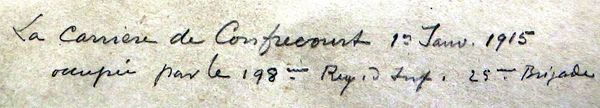 La Carriere de Confrecourt 1er Janv. 1915
occupée par le 198eme Reg. d'Inf. 25eme Brigade